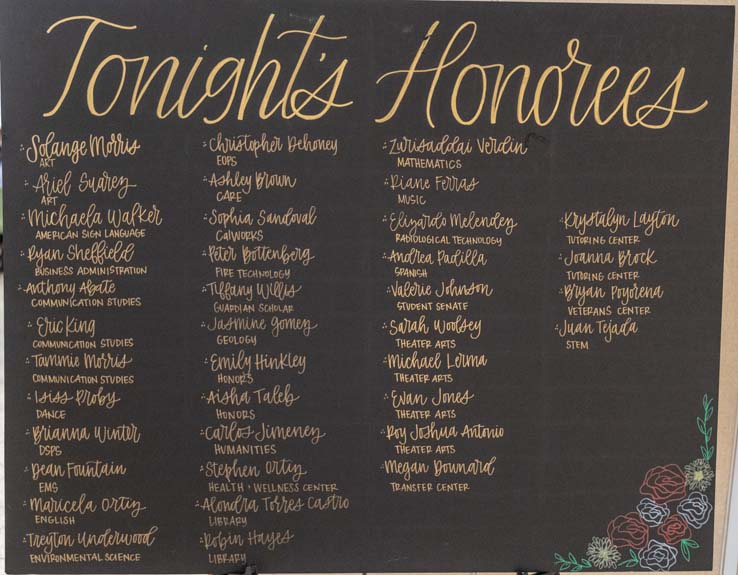 Tonight's Honorees
Solange Morris
ART
Ariel Suarez
ART
Michaela Walker
AMERICAN SIGN LANGUAGE
Ryan Sheffield
BUSINESS ADMINISTRATION
Anthony Abate
COMMUNICATION STUDIES
Eric King
COMMUNICATION STUDIES
Tammie Morris
COMMUNICATION STUDIES
Isiss Proby
DANCE
Brianna Winter
DSPS
Dean Fountain
EMS
Maricela Ortiz
ENGLISH
Treyton Underwood
ENVIRONMENTAL SCIENCE
Christopher Dehoney
EOPS
Ashley Brown
CARE
Sophia Sandoval
CalWORKS
Peter Bottenberg
FIRE TECHNOLOGY
Tiffany Willis
GUARDIAN SCHOLAR
Jasmine Gomez
GEOLOGY
Emily Hinkley
HONORS
Aisha Taleb
HONORS
Carlos Jimenez
HUMANITIES
Stephen Ortiz
HEALTH + WELLNESS CENTER
Alondra Torres Castro
LIBRARY
Robin Hayes
LIBRARY
Zurisaddai Verdin
MATHEMATICS
Diane Ferras
MUSIC
Elizardo Melendez
RADIOLOGICAL TECHNOLOGY
Andrea Padilla
SPANISH
Valerie Johnson
STUDENT SENATE
Sarah Woolsey
THEATER ARTS
Michael Lerma
THEATER ARTS
Evan Jones
THEATER ARTS
Roy Joshua Antonio
THEATER ARTS
Megan Downard
TRANSFER CENTER
Krystalyn Layton
TUTORING CENTER
Joanna Brock
TUTORING CENTER
Bryan Poyorena
VETERANS CENTER
Juan Tejada
STEM